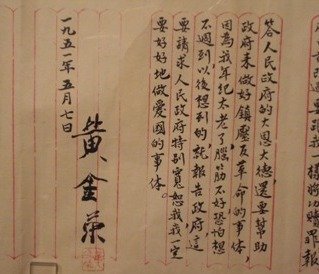 我一樣將功贖罪報
答人民政府的大恩大德，還要幫助
政府来做好鎮壓反革命的事体，
因為我年纪太老了腦筋不好恐怕想
不週到，以後想到的就報告政府，這
要請求人民政府特别寬恕我，我一定
要好好地做愛國的事体。
一九五一年五月七日
黃金荣